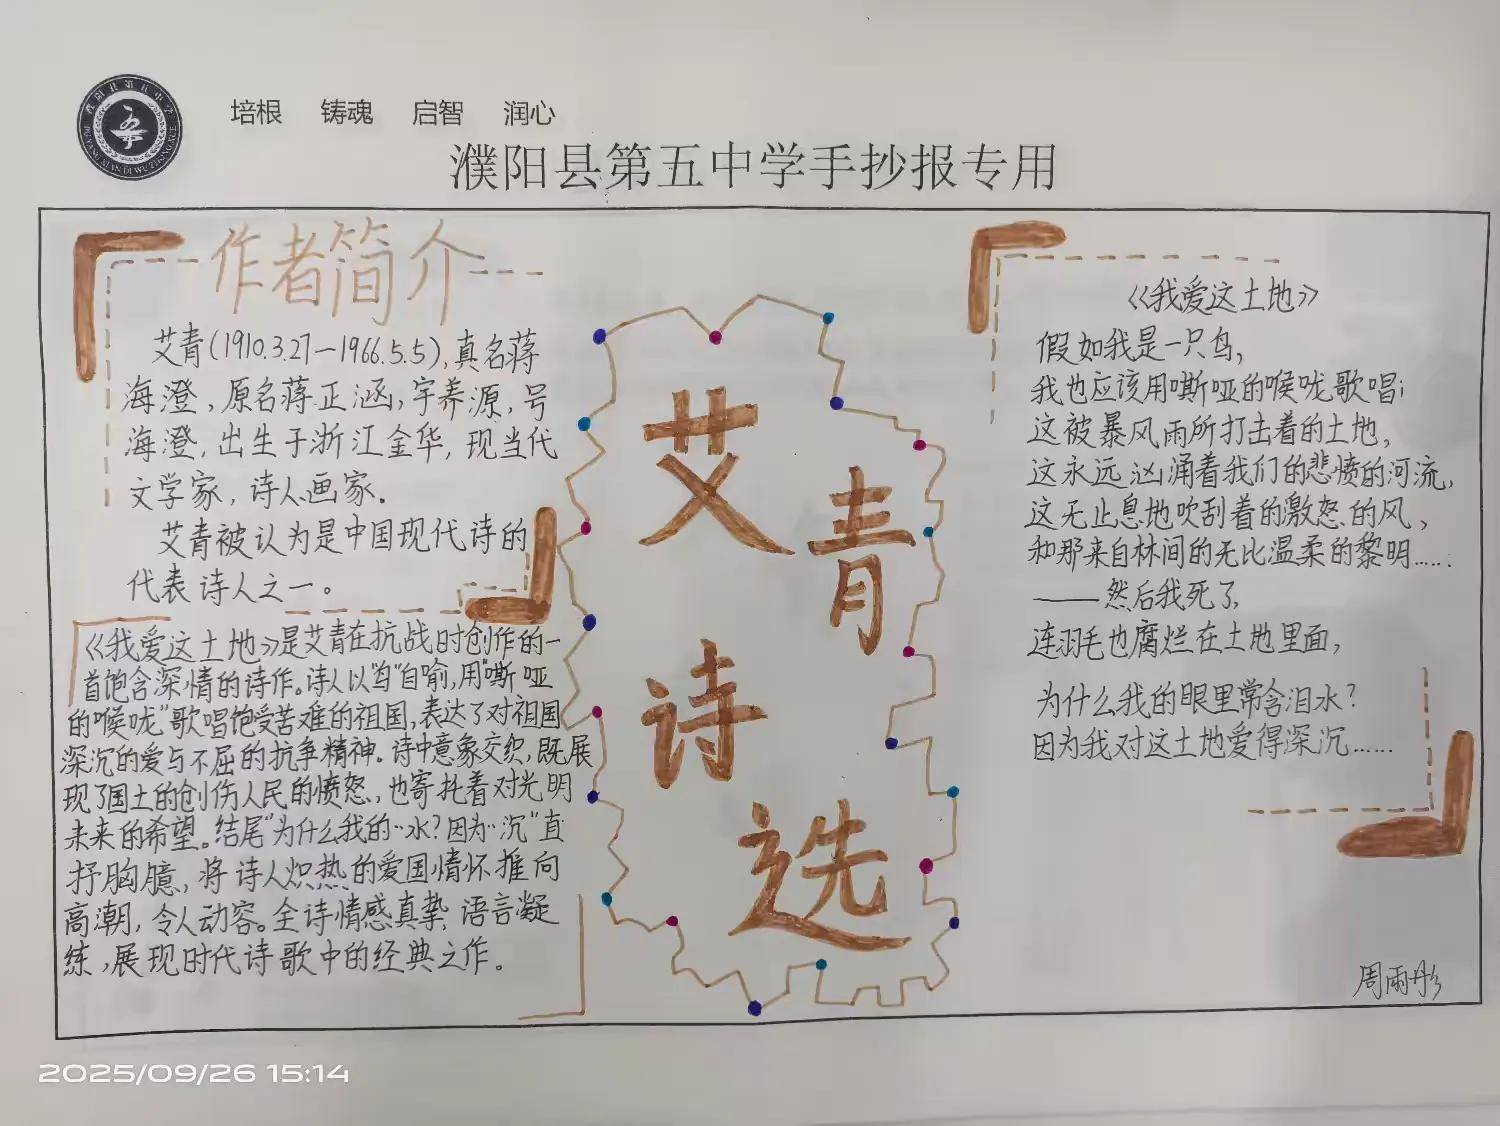 培根 铸魂 启智 润心
濮阳县第五中学手抄报专用
作者简介
艾青(1910.3.27—1966.5.5),真名蒋
海澄,原名蒋正涵,字养源,号
海澄,出生于浙江金华,现当代
文学家,诗人画家。
艾青被认为是中国现代诗的
代表诗人之一。
《我爱这土地》是艾青在抗战时创作的一
首饱含深情的诗作。诗人以"鸟"自喻,用"嘶哑
的喉咙"歌唱饱受苦难的祖国,表达了对祖国
深沉的爱与不屈的抗争精神。诗中意象交织,既展
现了国土的创伤人民的愤怒,也寄托着对光明
未来的希望。结尾"为什么我的…水?因为…沉"直
抒胸臆,将诗人炽热的爱国情怀推向
高潮,令人动容。全诗情感真挚,语言凝
练,展现时代诗歌中的经典之作。
艾青
诗
选
《我爱这土地》
假如我是一只鸟,
我也应该用嘶哑的喉咙歌唱;
这被暴风雨所打击着的土地,
这永远汹涌着我们的悲愤的河流,
这无止息地吹刮着的激怒的风、
和那来自林间的无比温柔的黎明……
——然后我死了,
连羽毛也腐烂在土地里面,
为什么我的眼里常含泪水?
因为我对这土地爱得深沉……
周雨彤
2025/09/26 15:14